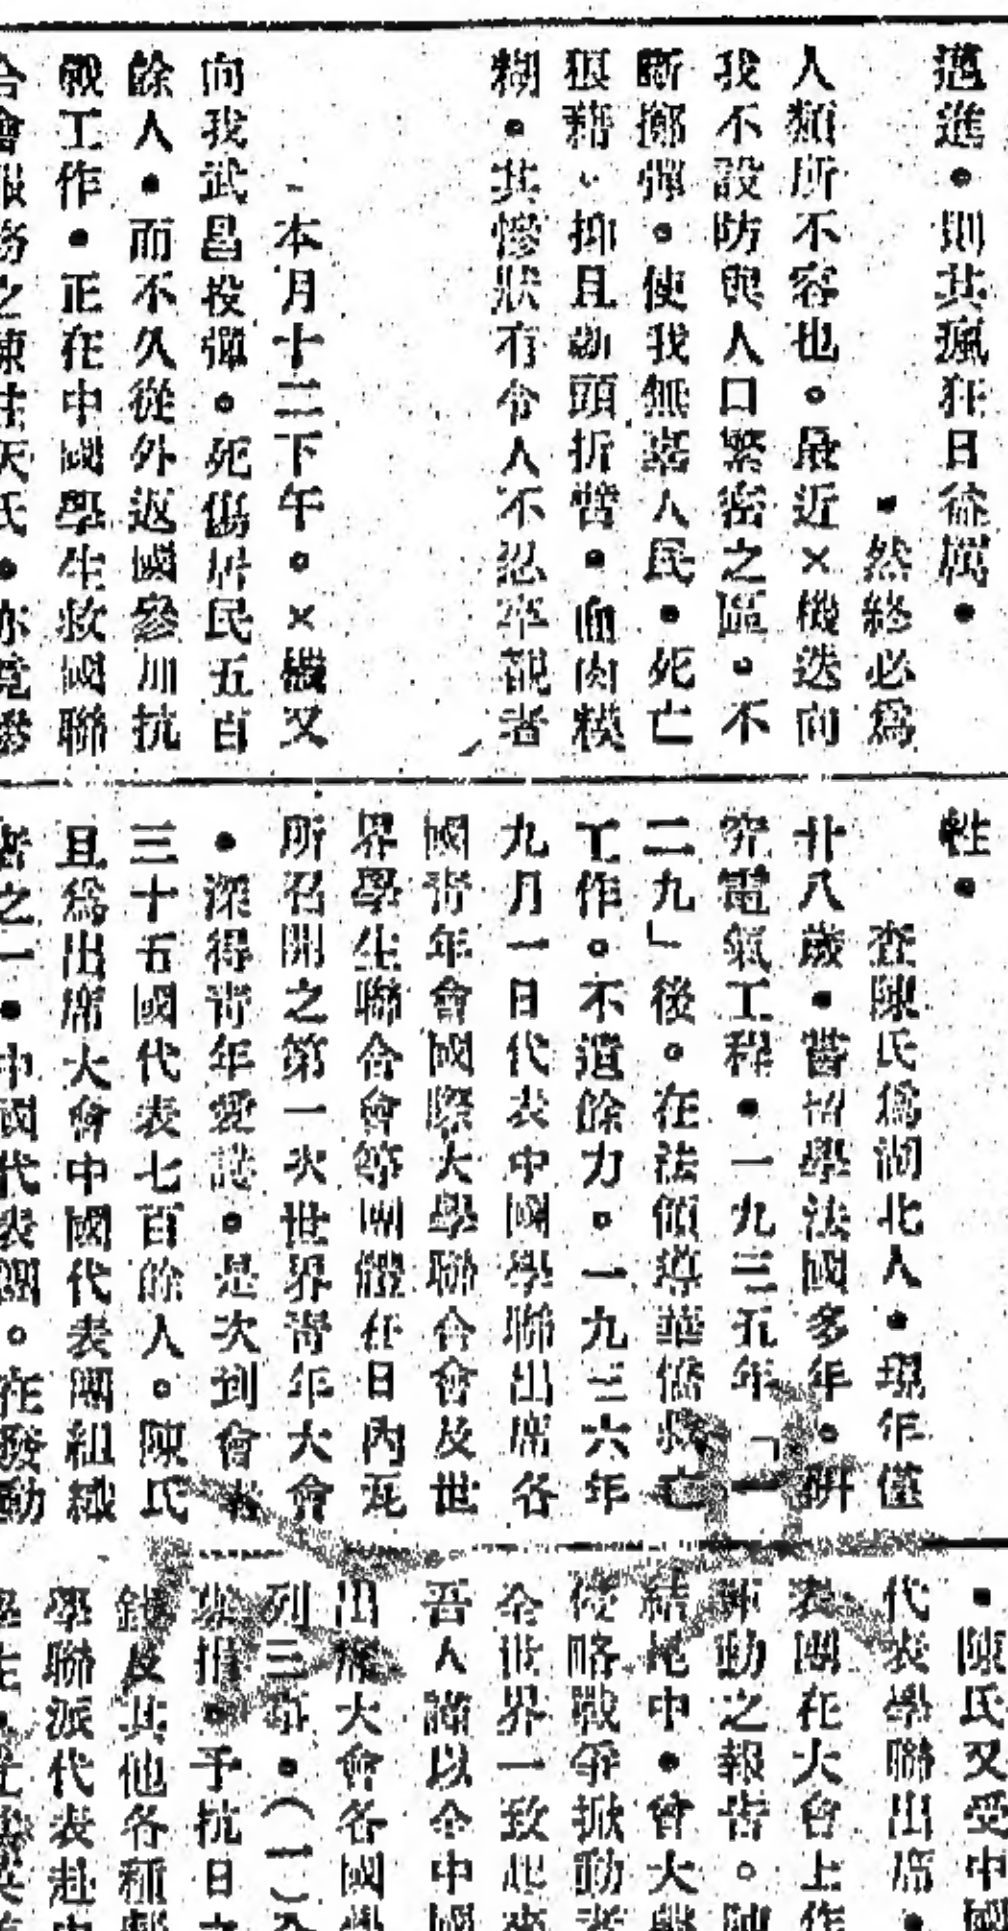 邁進。則其瘋狂日益厲。
。然終必爲
人類所不容也。最近×機迭向
我不設防與人口繁密之區。不
斷擲彈。使我無辜人民。死亡
狼藉。抑且斷頭折臂。血肉模
糊。其慘狀有令人不忍卒觀者
本月十二下午。×機又
向我武昌投彈。死傷居民五百
餘人。而不久從外返國參加抗
戰工作。正在中國學生救國聯
合會服務之陳柱天氏。亦竟
牲。
查陳氏爲湖北人。現年僅
廿八歲。嘗留學法國多年。研
究電氣工程。一九三五年「一
二九」後。在法領導華僑救亡
工作。不遺餘力。一九三六年
九月一日代表中國學聯出席各
國靑年會國際大學聯合會及世
界學生聯合會等團體在日內瓦
所召開之第一次世界靑年大會
。深得靑年愛護。是次到會者
三十五國代表七百餘人。陳氏
且爲出席大會中國代表團組織
者之一。中國代表團。在發動
。陳氏又受中國
代表學聯出席。
表團在大會上作
運動之報吿。陳
結尾中。曾大聲
侵略戰爭掀動者
全世界一致起來
吾人謹以全中國
出席大會各國學
列三事。(一)
募捐。予抗日之
錢及其他各種
學聯派代表赴
學生。